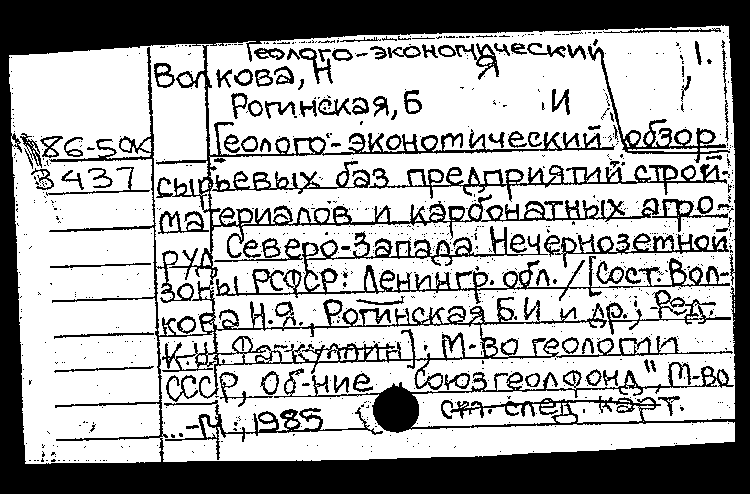 Геолого-экономический 1.
Волкова, Н Я
Рогинская, Б И
86-5 Геолого-экономический обзор
3437 сырьевых баз предприятий строй-
материалов и карбонатных агро-
руд Северо-Запада Нечерноземной
зоны РСФСР: Ленингр. обл. / [Сост. Вол-
кова Н.Я., Рогинская Б.И и др.; Ред.
Фаткуллин]; М-во геологии
СССР, Об-ние "Союзгеолфонд", М-во
...-М., 1985 см. след. карт.